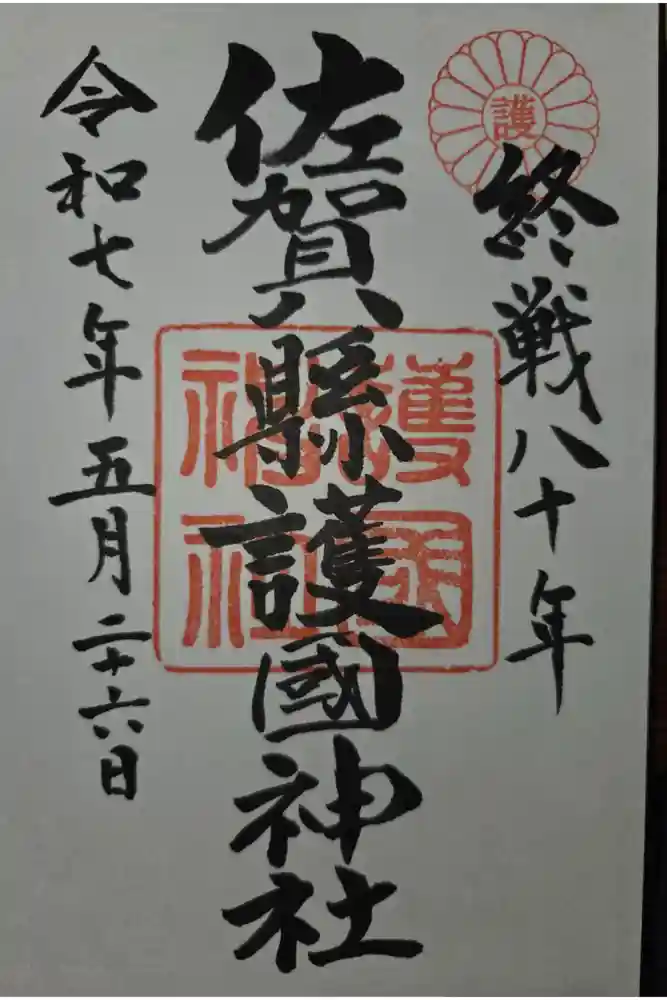 護
終戦八十年
佐賀縣護國神社
護國
神社
令和七年五月二十六日